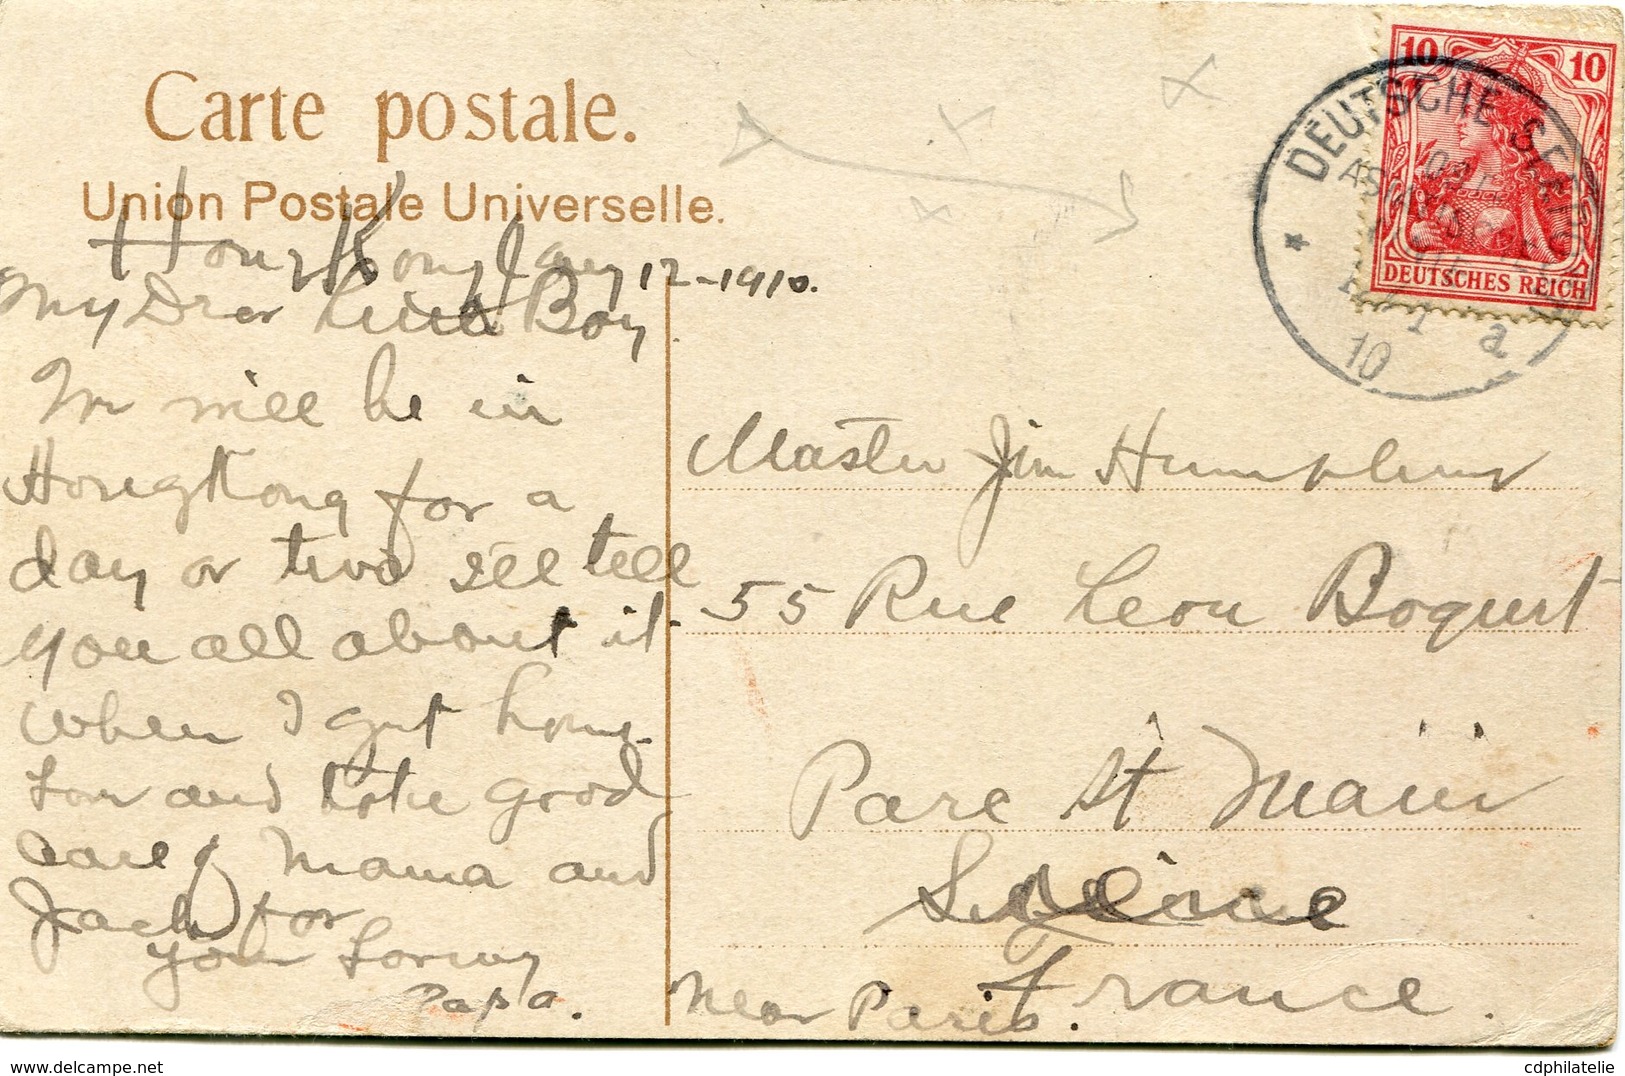 Carte postale.
Union Postale Universelle.
Hong Kong Jany 12-1910.
My Dear Little Boy
We will be in
Hong Kong for a
day or two I'll tell
you all about it
when I get home.
Love and take good
care of Mama and
Jack for
your Loving
Papa.
10 10
DEUTSCHES REICH
DEUTSCHE SEEPOST
10
a
Master Jim
55 Rue Leon Boquet
Parc St Maur
Seine
France.
near Paris.
delcampe.net
cdphilatelie